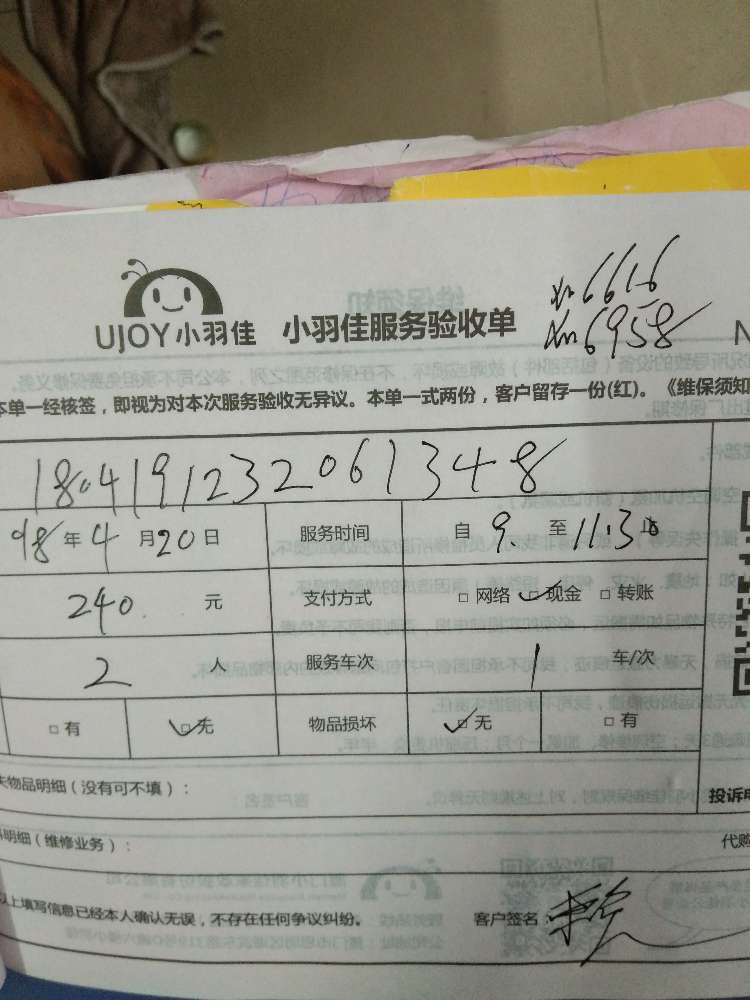 6616
6958
UJOY小羽佳 小羽佳服务验收单
本单一经核签，即视为对本次服务验收无异议。本单一式两份，客户留存一份(红)。《维保须知
1804191232061348
18年4月20日 服务时间 自 9. 至 11:3 止
240. 元 支付方式 □ 网络 □ 现金 □ 转账
2 人 服务车次 1 车/次
□ 有 □ 无 物品损坏 □ 无 □ 有
失物品明细（没有可不填）： 投诉电
明细（维修业务）： 代购
以上填写信息已经本人确认无误，不存在任何争议纠纷。 客户签名：